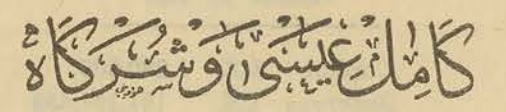 كَامِل عِيسَى وَشُرَكَاه